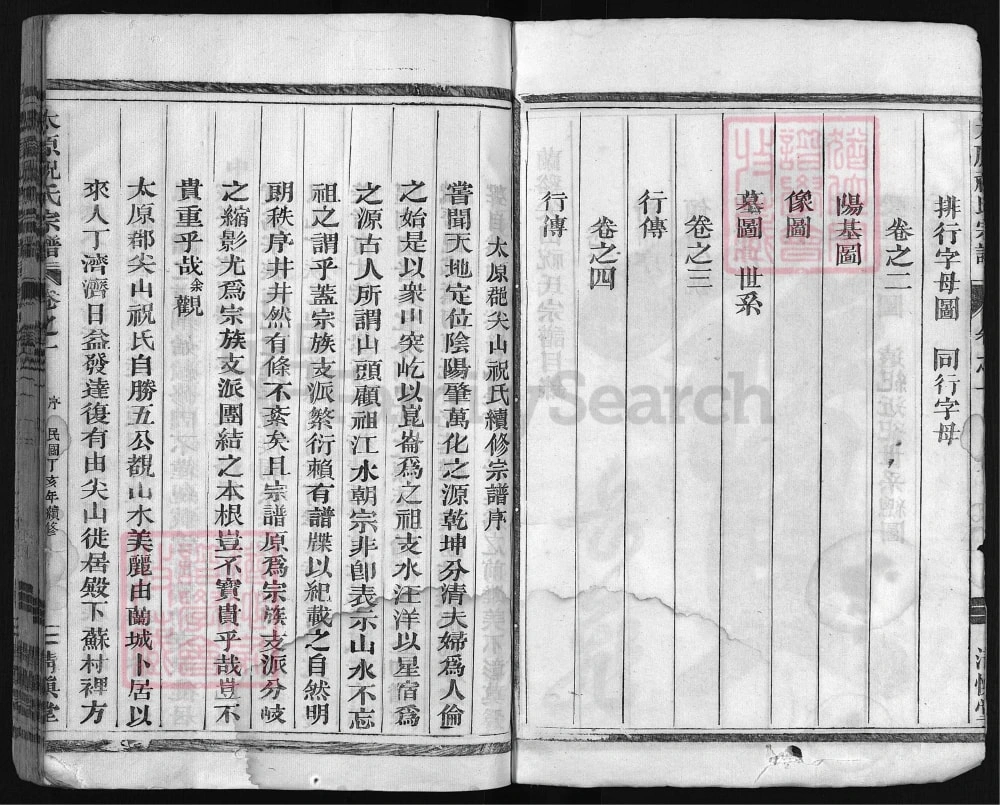 排行字母圖 同行字母
卷之二
陽基圖
像圖
墓圖 世系
卷之三
行傳
卷之四
行傳
太原郡尖山祝氏續修宗譜序
嘗聞天地定位陰陽肇萬化之源乾坤分清夫婦爲人倫
之始是以衆山突屹以崑崙爲之祖支水汪洋以星宿爲
之源古人所謂山頭顧祖江水朝宗非卽表示山水不忘
祖之謂乎蓋宗族支派繁衍賴有譜牒以紀載之自然明
朗秩序井井然有條不紊矣且宗譜原爲宗族支派分岐
之縮影尤爲宗族支派團結之本根豈不寶貴乎哉豈不
貴重乎哉余觀
太原郡尖山祝氏自勝五公觀山水美麗由蘭城卜居以
來人丁濟濟日益發達復有由尖山徒居殿下蘇村裡方
太原祝氏宗譜 卷之一 序 民國丁亥年續修 二 清愼堂
FamilySearch